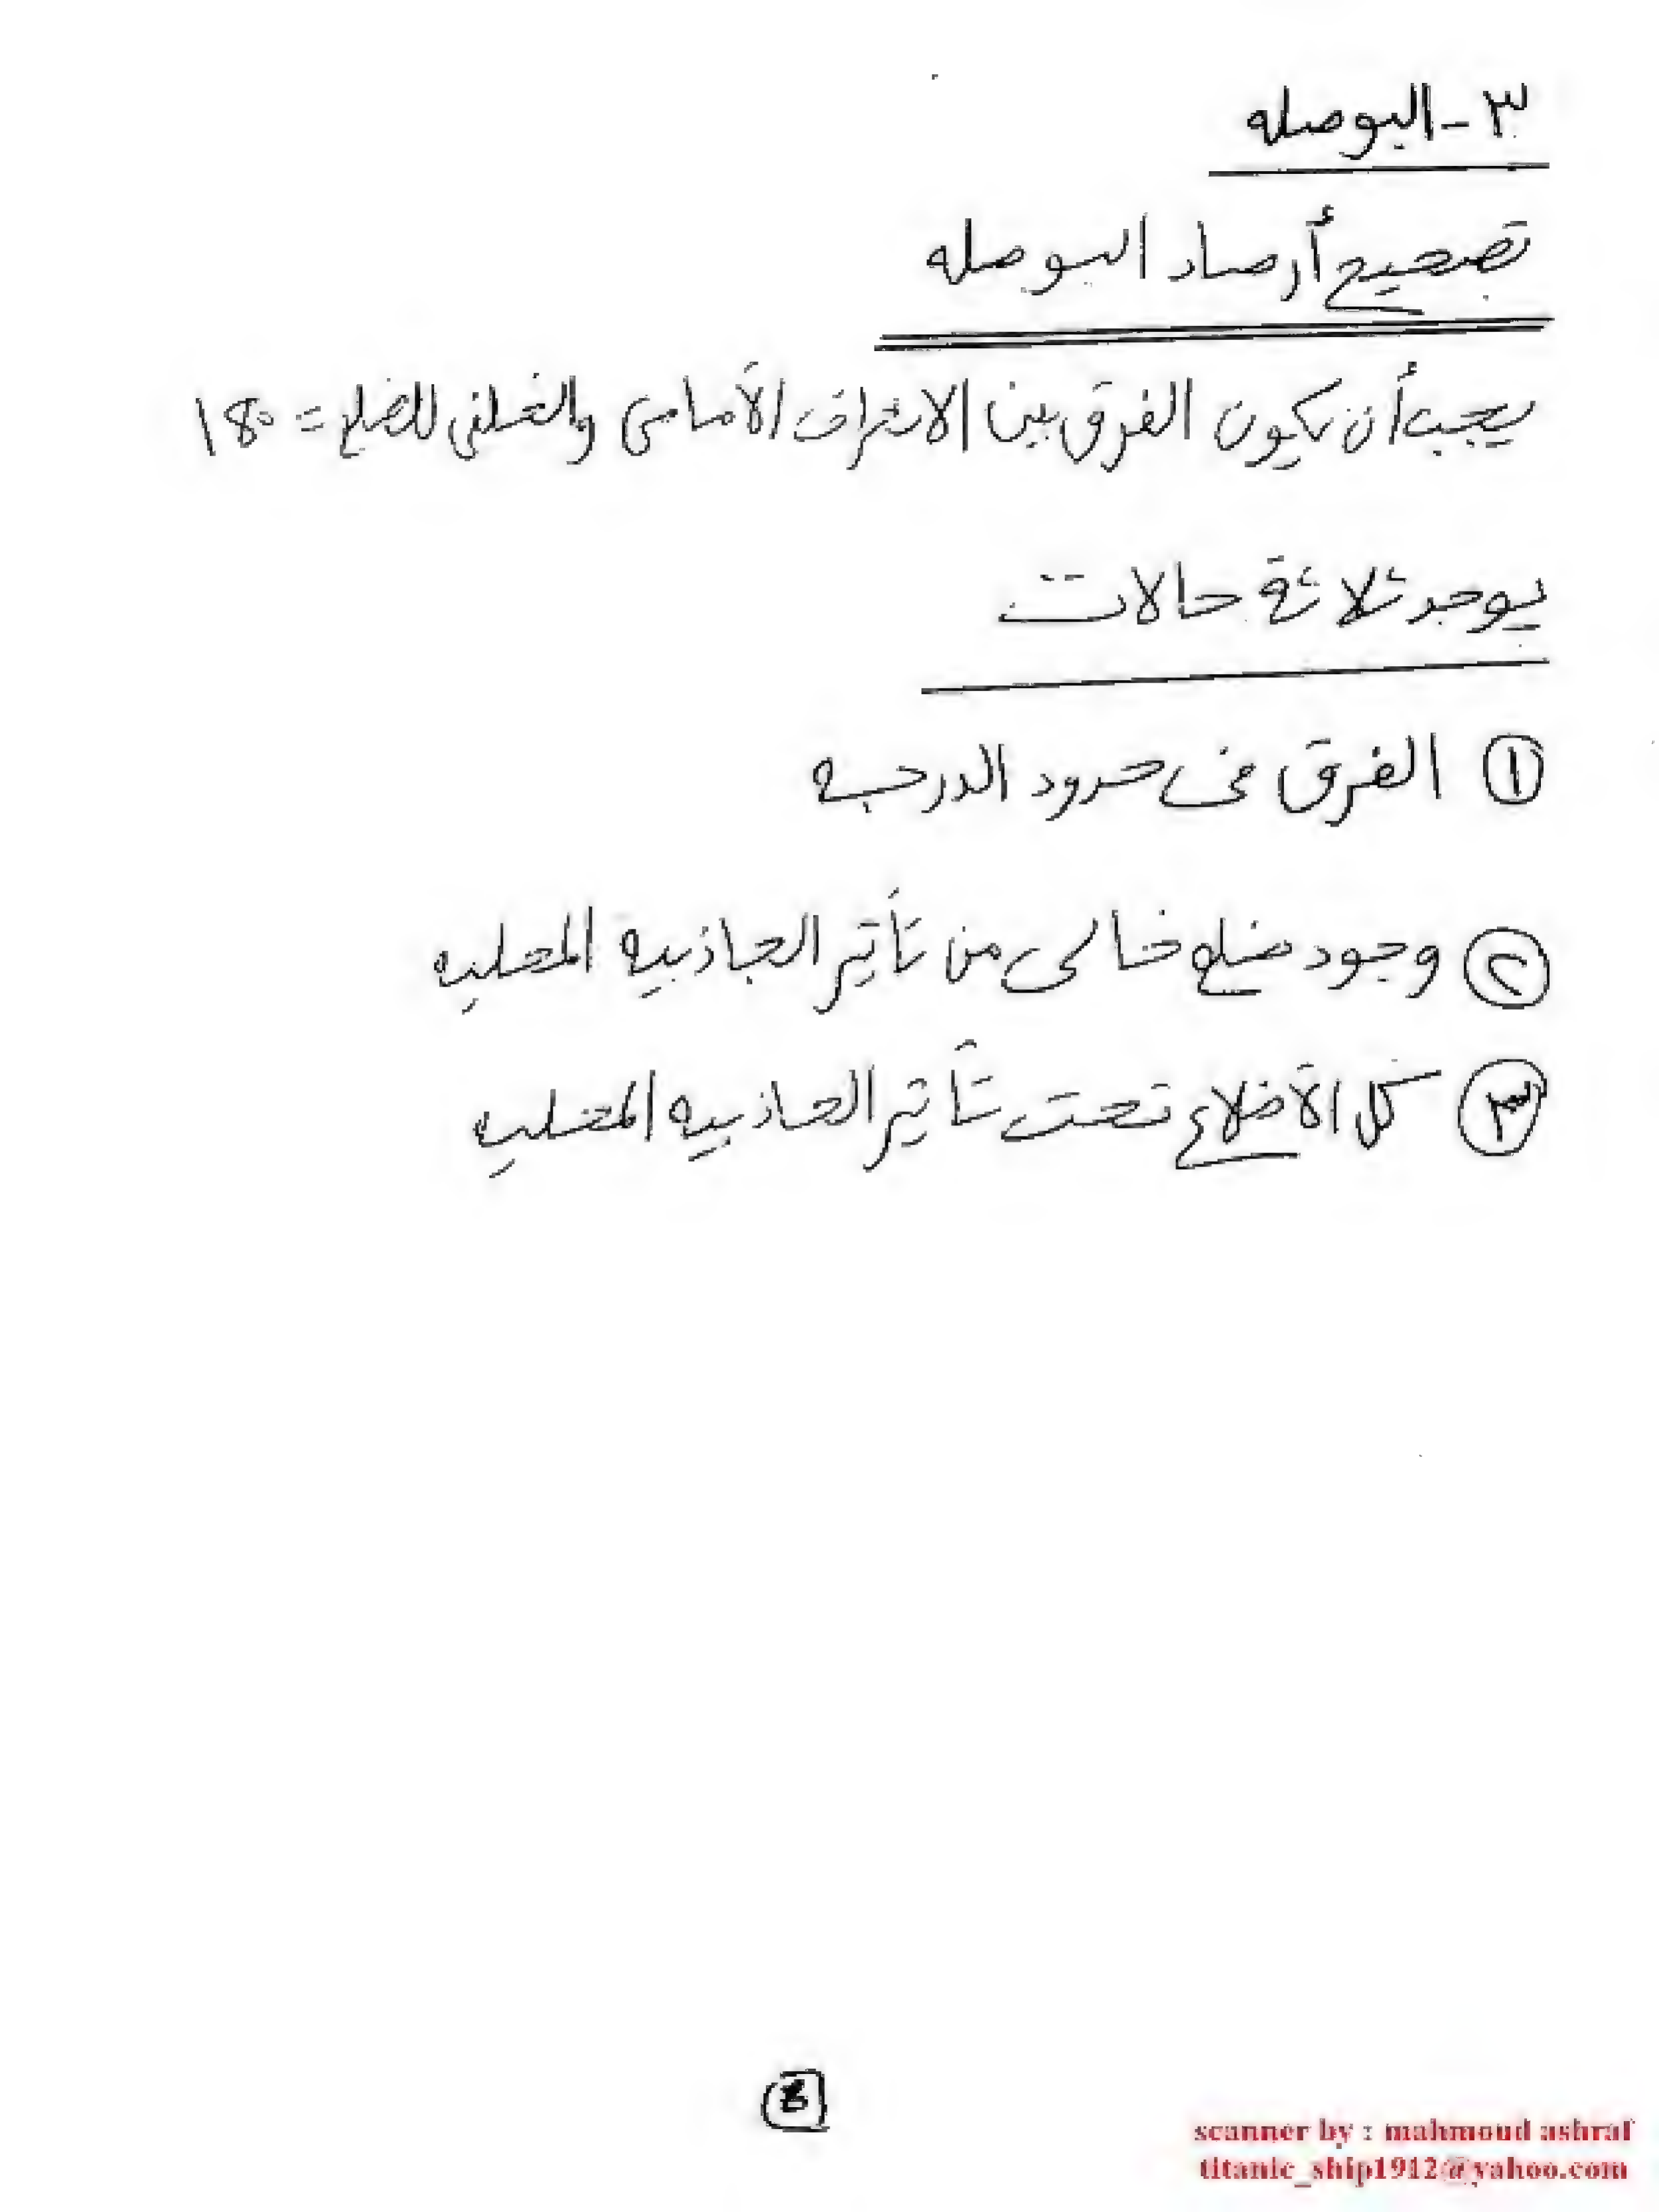 ٣ - البوصله
تصحيح أرصاد البوصله
يجب أن يكون الفرق بين الانحراف الأمامى والخلفى للضلع = 180
يوجد ثلاثة حالات
① الفرق فى حدود الدرجه
② وجود ضلع خالى من تأثير الجاذبيه المحليه
③ كل الأضلاع تحت تأثير الجاذبيه المحليه
scanner by : mahmoud ashraf
titanic_ship1912@yahoo.com